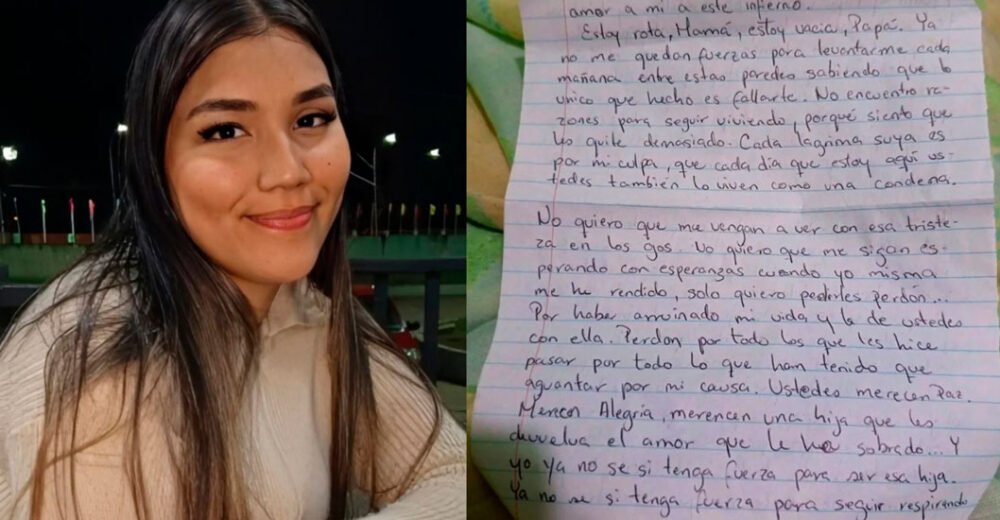 amor a mi a este infierno.
Estoy rota, Mamá, estoy vacia, Papá. Ya
no me quedan fuerzas para levantarme cada
mañana entre estas paredes sabiendo que lo
unico que hecho es fallarte. No encuentro ra-
zones para seguir viviendo, porqué siento que
Yo quite demasiado. Cada lagrima suya es
por mi culpa, que cada dia que estoy aquí us-
tedes también lo viven como una condena.
No quiero que me vengan a ver con esa triste-
za en los ojos. No quiero que me sigan es-
perando con esperanzas cuando yo misma
me he rendido, solo quiero pedirles perdón...
Por haber arruinado mi vida y la de ustedes
con ella. Perdon por todo los que les hice
pasar por todo lo que han tenido que
aguantar por mi causa. Ustedes merecen Paz.
Merecen Alegria, merencen una hija que les
devuelva el amor que le ha sobrado... Y
yo ya no se si tenga fuerza para ser esa hija.
Ya no se si tenga fuerza para seguir respirando